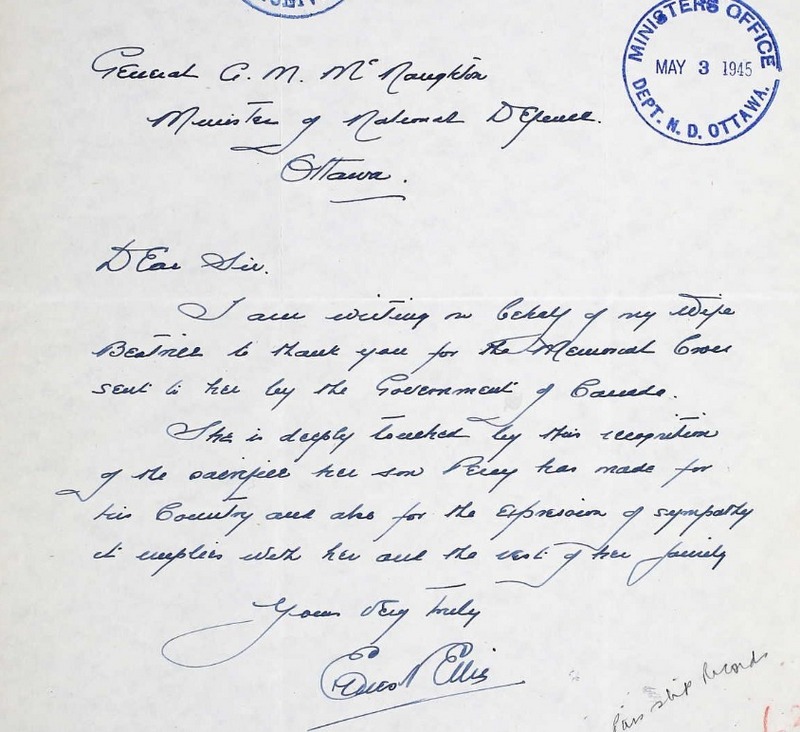 MINISTERS OFFICE
MAY 3 1945
DEPT. N. D. OTTAWA.
General A. G. L. McNaughton
Minister of National Defence.
Ottawa.
Dear Sir.
I am writing on behalf of my Wife
Beatrice to thank you for the Memorial Cross
sent to her by the Government of Canada.
She is deeply touched by this recognition
of the sacrifice her son Percy has made for
his Country and also for the expression of sympathy
it implies with her and the rest of her family
Yours Very truly
Ellis
records